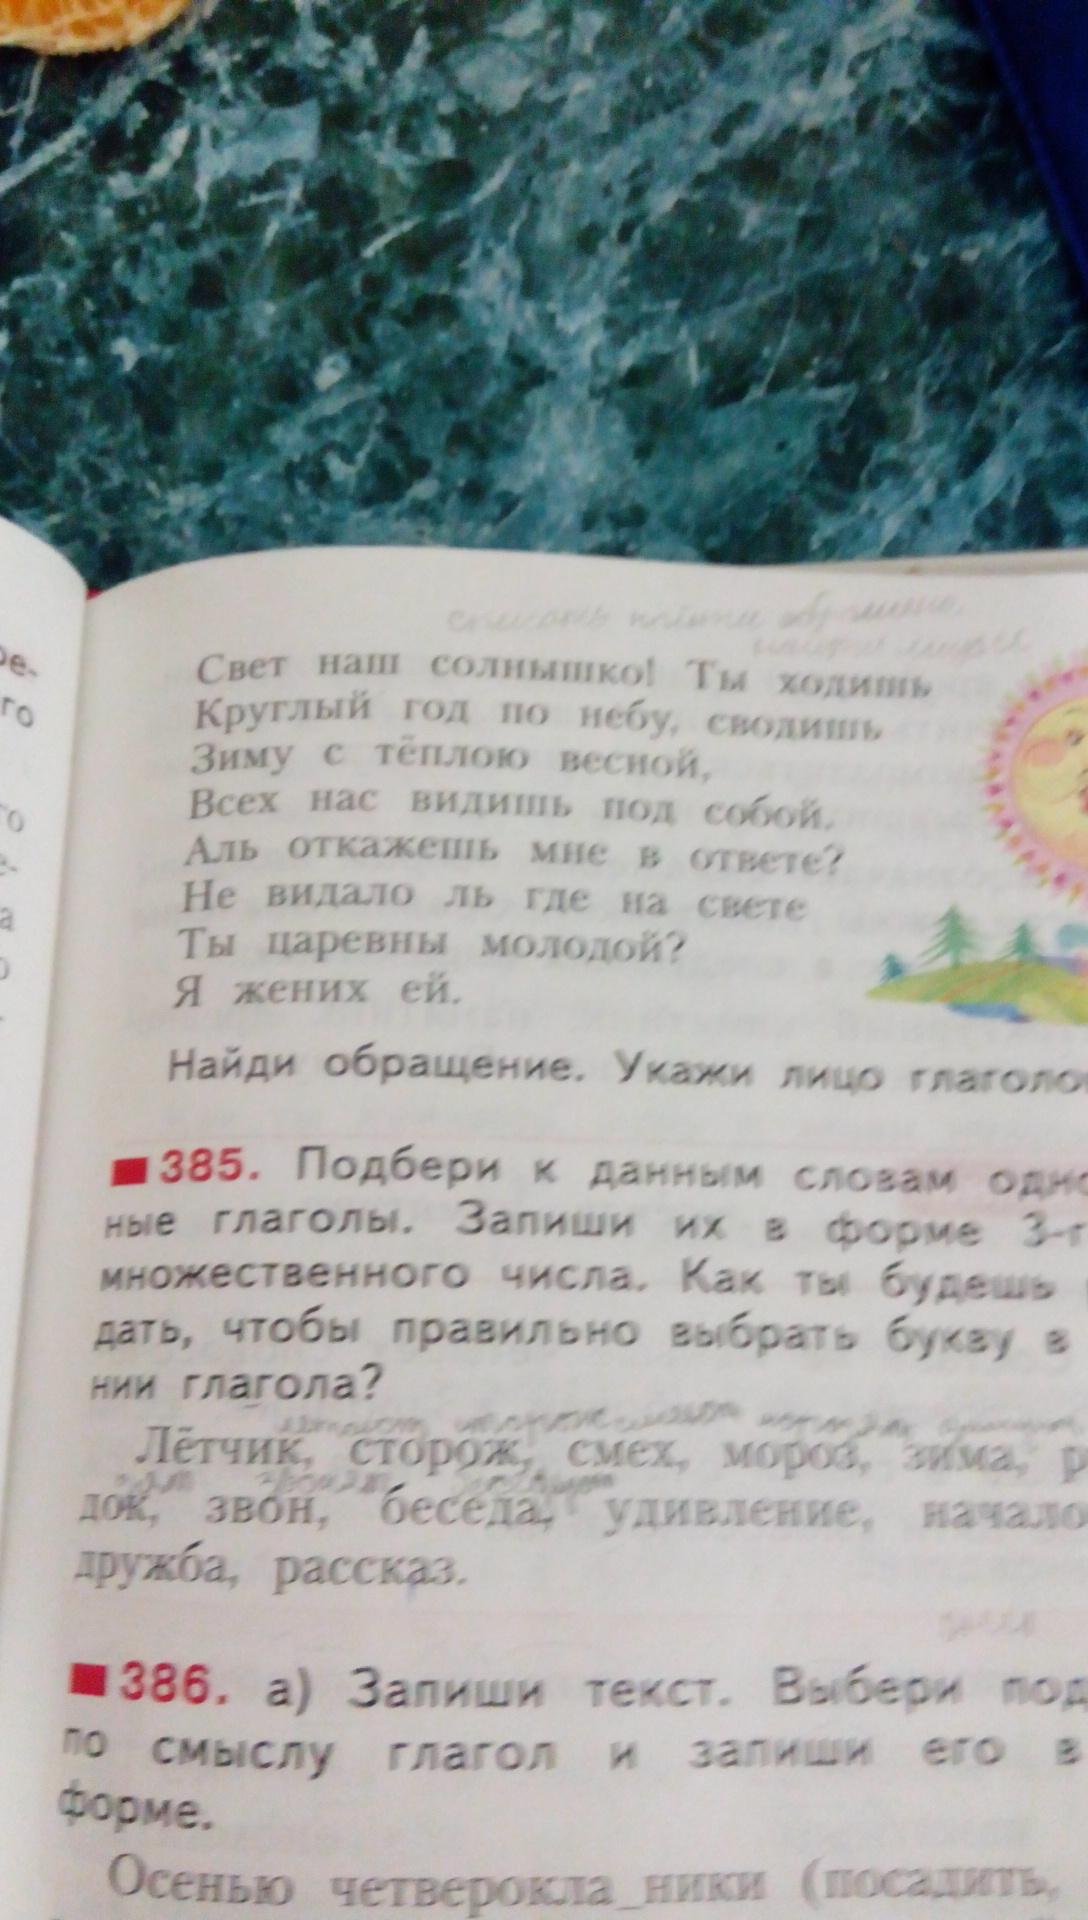 Свет наш солнышко! Ты ходишь
Круглый год по небу, сводишь
Зиму с тёплою весной,
Всех нас видишь под собой.
Аль откажешь мне в ответе?
Не видало ль где на свете
Ты царевны молодой?
Я жених ей.
Найди обращение. Укажи лицо глаголо
385. Подбери к данным словам одно
ные глаголы. Запиши их в форме 3-г
множественного числа. Как ты будешь
дать, чтобы правильно выбрать букву в
нии глагола?
Лётчик, сторож, смех, мороз, зима, р
док, звон, беседа, удивление, начало
дружба, рассказ.
386. а) Запиши текст. Выбери под
по смыслу глагол и запиши его в
форме.
Осенью четверокла_ники (посадить,